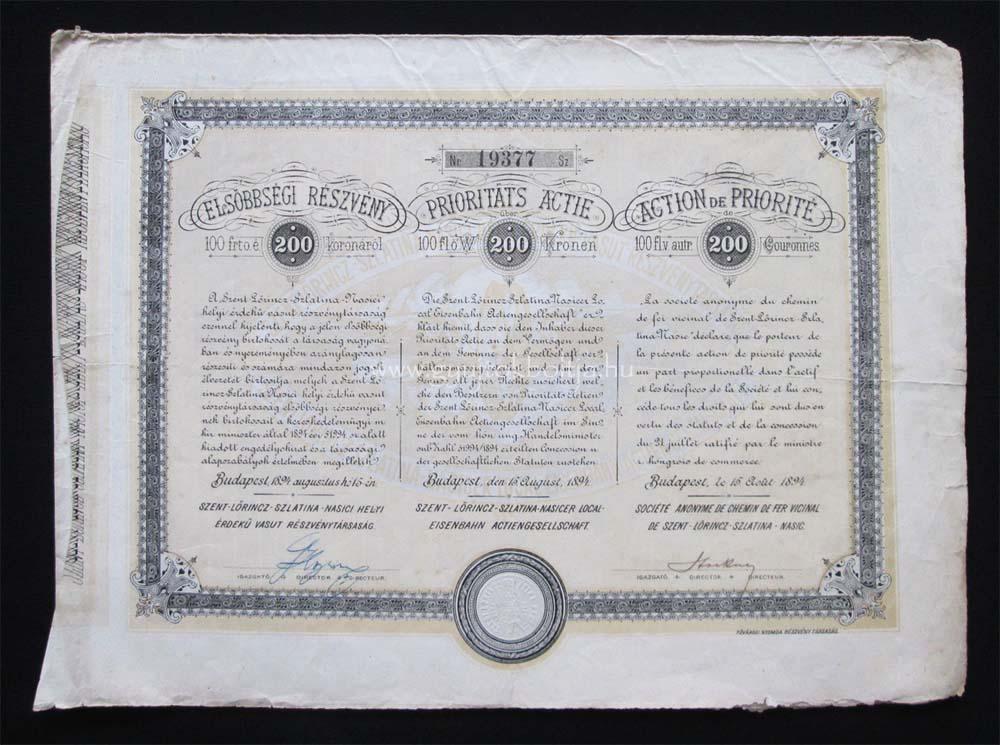 Nr. 19377 Sz.
ELSŐBBSÉGI RÉSZVÉNY
100 frt o. é. 200 koronáról
A Szent Lőrincz-Szlatina-Nasici
helyi érdekű vasut részvénytársaság
ezennel kijelenti, hogy a jelen elsőbbségi
részvény birtokosát a társaság vagyoná-
ban és nyereményeiben aránylagosan
részesíti és számára mindazon jogok
élvezetét biztosítja, melyek a Szent Lő-
rincz-Szlatina-Nasici helyi érdekű vasut
részvénytársaság elsőbbségi részvényei-
nek birtokosait a kereskedelemügyi m.
kir. miniszter által 1894 évi 51994 sz. alatt
kiadott engedélyokirat és a társasági
alapszabályok értelmében megilletik.
Budapest, 1894 augusztus hó 15-én.
SZENT-LŐRINCZ-SZLATINA-NASICI HELYI
ÉRDEKŰ VASUT RÉSZVÉNYTÁRSASÁG.
PRIORITÄTS ACTIE
über
100 fl. ö. W. 200 Kronen
Die Szent Lőrincz-Szlatina Nasicer Lo-
cal Eisenbahn Actiengesellschaft er-
klärt hiemit, dass sie den Inhaber dieser
Prioritäts Actie an dem Vermögen und
an dem Gewinne der Gesellschaft ver-
hältnissmässig betheiligt und ihm den
Genuss all jener Rechte zusichert wel-
che den Besitzern von Prioritäts Actien
der Szent Lőrincz-Szlatina Nasicer Local
Eisenbahn Actiengesellschaft im Sin-
ne der vom kön. ung. Handelsminister
sub Zahl 51994/1894 erteilten Concession u.
der gesellschaftlichen Statuten zustehen.
Budapest, den 15 August, 1894.
SZENT-LŐRINCZ-SZLATINA-NASICER LOCAL-
EISENBAHN ACTIENGESELLSCHAFT.
ACTION DE PRIORITÉ
de
100 fl. v. autr. 200 Couronnes.
La société anonyme du chemin
de fer vicinal de Szent-Lőrincz-Szla-
tina-Nasic déclare, que le porteur de
la présente action de priorité possède
un part proportionelle dans l'actif
et les bénéfices de la Société et lui con-
cède tous les droits qui lui sont dus en
vertu des statuts et de la concession
du 21 juillet ratifié par le ministre
r. hongrois de commerce.
Budapest, le 15 Août 1894
SOCIÉTÉ ANONYME DE CHEMIN DE FER VICINAL
DE SZENT-LŐRINCZ-SZLATINA-NASIC.
IGAZGATÓ DIRECTOR DIRECTEUR.
IGAZGATÓ DIRECTOR DIRECTEUR.
FŐVÁROSI NYOMDA RÉSZVÉNY-TÁRSASÁG.